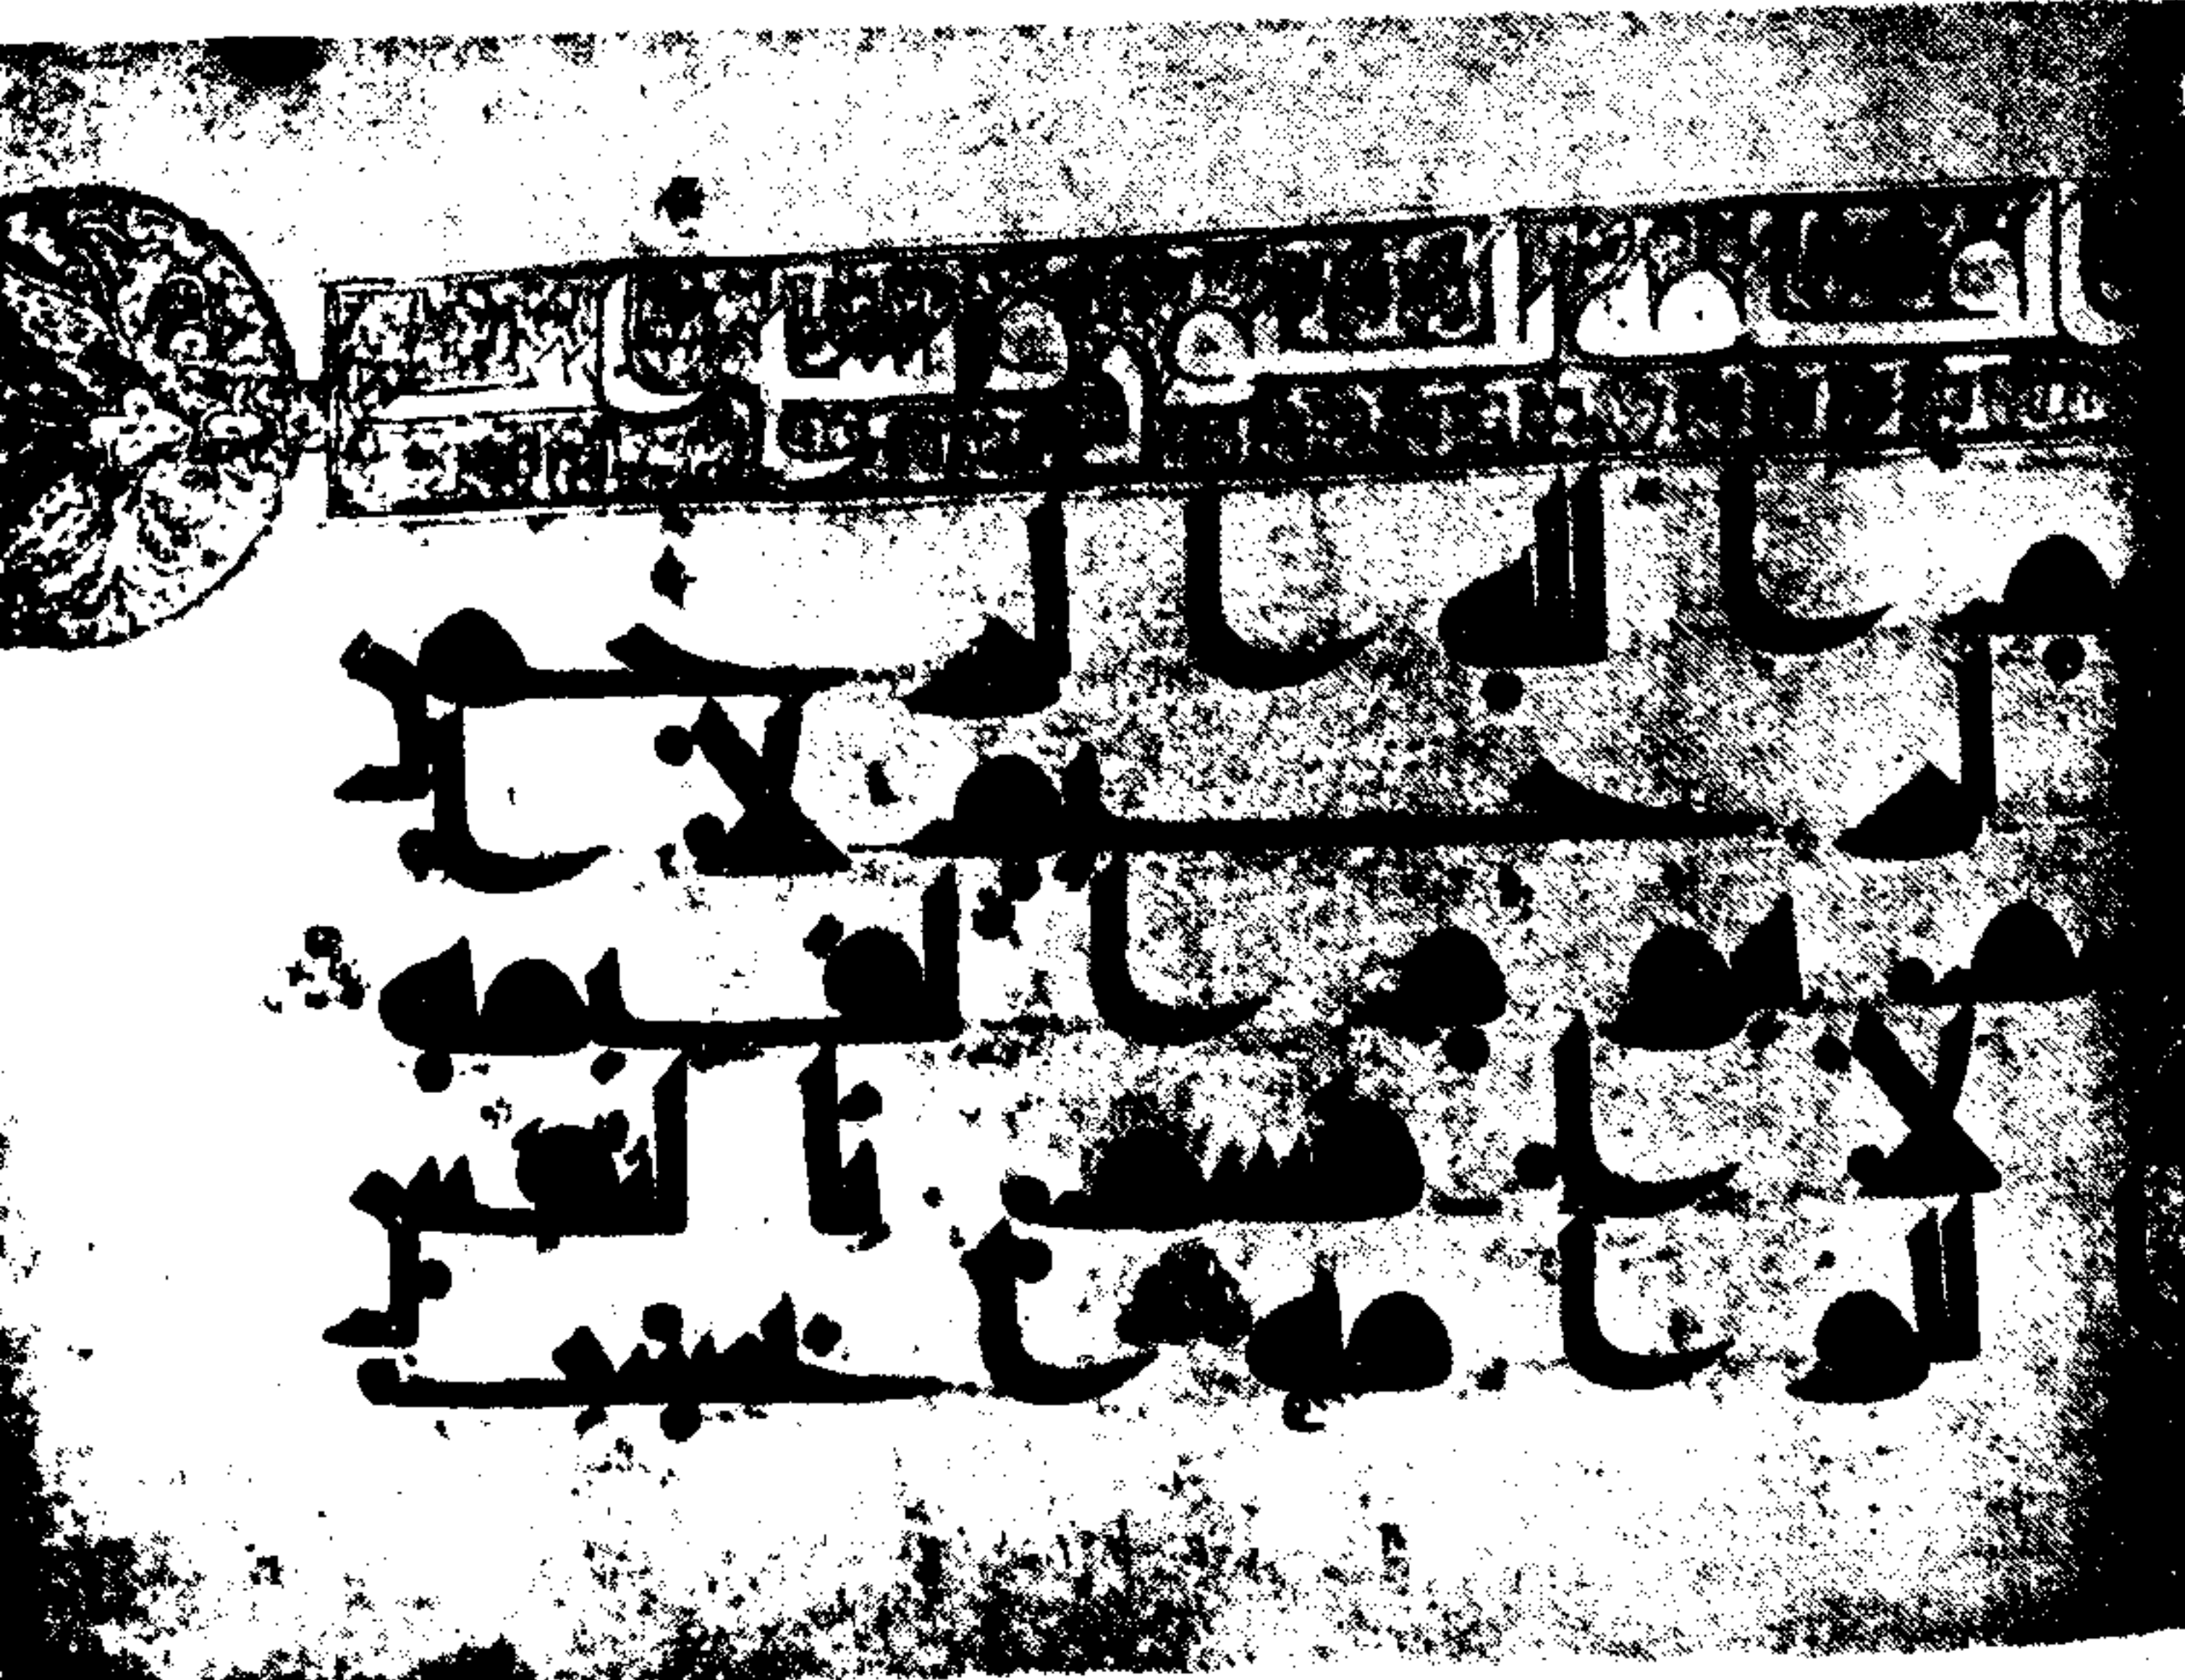 بسم الله الرحمن
الرحيم لا ا
قسم بيوم القيمه
ولا اقسم بالنفس
اللوامه ايحسب